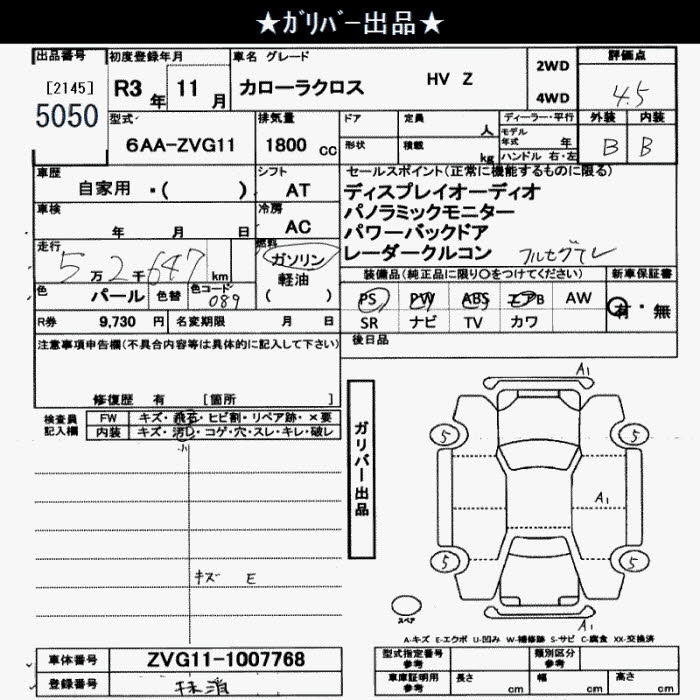 ★ｶﾞﾘﾊﾞｰ出品★
出品番号 初度登録年月 車名 グレード 評価点
[2145] R3 年 11 月 カローラクロス HV Z 2WD 4WD 4.5
5050
型式 排気量 ドア 定員 人 ディーラー・平行 外装 内装
6AA-ZVG11 1800 cc 形状 積載 kg モデル年式 年 B B
ハンドル 右・左
車歴 シフト セールスポイント(正常に機能するものに限る)
自家用 ・( ) AT ディスプレイオーディオ
車検 冷房 パノラミックモニター
年 月 日 AC パワーバックドア
走行 燃料 レーダークルコン フルセグTV
5万2千647km ガソリン
軽油
( )
装備品(純正品に限り○をつけてください) 新車保証書
色 パール 色替 色コード 089
PS PW ABS エアB AW 有・無
R券 9,730 円 名変期限 月 日 SR ナビ TV カワ
注意事項申告欄(不具合内容等は具体的に記入して下さい) 後日品
修復歴 有 [箇所 ]
検査員記入欄 FW キズ・飛石・ヒビ割・リペア跡・×要
内装 キズ・汚レ・コゲ・穴・スレ・キレ・破レ
小
ガリバー出品
A1
5 5
A1
キズ E
5 5
スペア
A1
A-キズ E-エクボ U-凹み W-補修跡 S-サビ C-腐食 XX-交換済
車体番号 ZVG11-1007768 型式指定番号 参考 類別区分 参考
登録番号 抹消 車庫証明用 参考 長さ cm 幅 cm 高さ cm